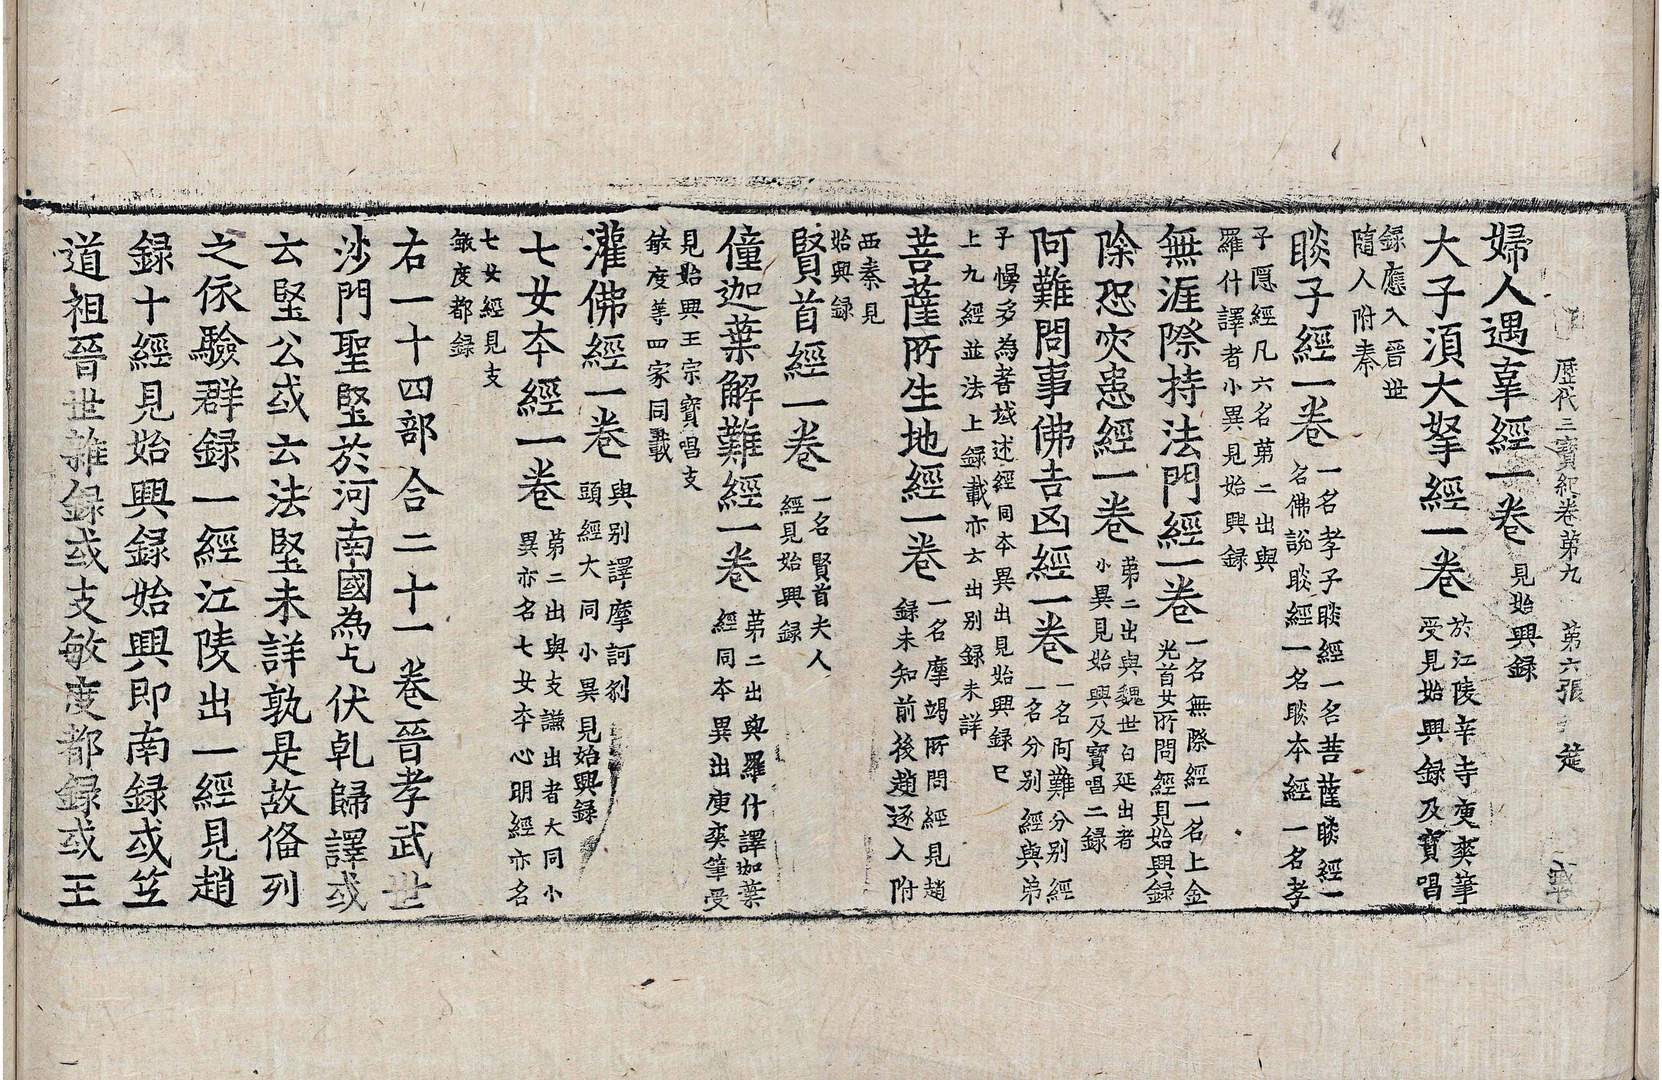 歷代三寶紀卷第九　第六張　筵
婦人遇辜經一卷 見始興録
大子湏大拏經一卷 於江陵辛寺庾爽筆
受見始興録及寶唱
録應入晉世
隨人附秦
睒子經一卷 一名孝子睒經一名菩薩睒經一
名佛説睒經一名睒本經一名孝
子隠經凡六名苐二出與
羅什譯者小異見始興録
無涯際持法門經一卷 一名無際經一名上金
光首女所問經見始興録
除恐灾患經一卷 苐二出與魏世白延出者
小異見始興及寶唱二録
阿難問事佛吉凶經一卷 一名阿難分别經
一名分别經與弟
子慢多為耆域述經同本異出見始興録已
上九經並法上録載亦云出别録未詳
菩薩所生地經一卷 一名摩竭所問經見趙
録未知前後趙逐入附
西秦見
始興録
賢首經一卷 一名賢首夫人
經見始興録
僮迦葉解難經一卷 苐二出與羅什譯迦葉
經同本異出庾爽筆受
見始興王宗寳唱支
敏度等四家同載
灌佛經一卷 與别譯摩訶刹
頭經大同小異見始興録
七女本經一卷 苐二出與支謙出者大同小
異亦名七女本心明經亦名
七女經見支
敏度都録
右一十四部合二十一卷晉孝武世
沙門聖堅於河南國為乞伏乹歸譯或
云堅公或云法堅未詳孰是故俻列
之依驗群録一經江陵出一經見趙
録十經見始興録始興即南録或竺
道祖晉世雜録或支敏度都録或王